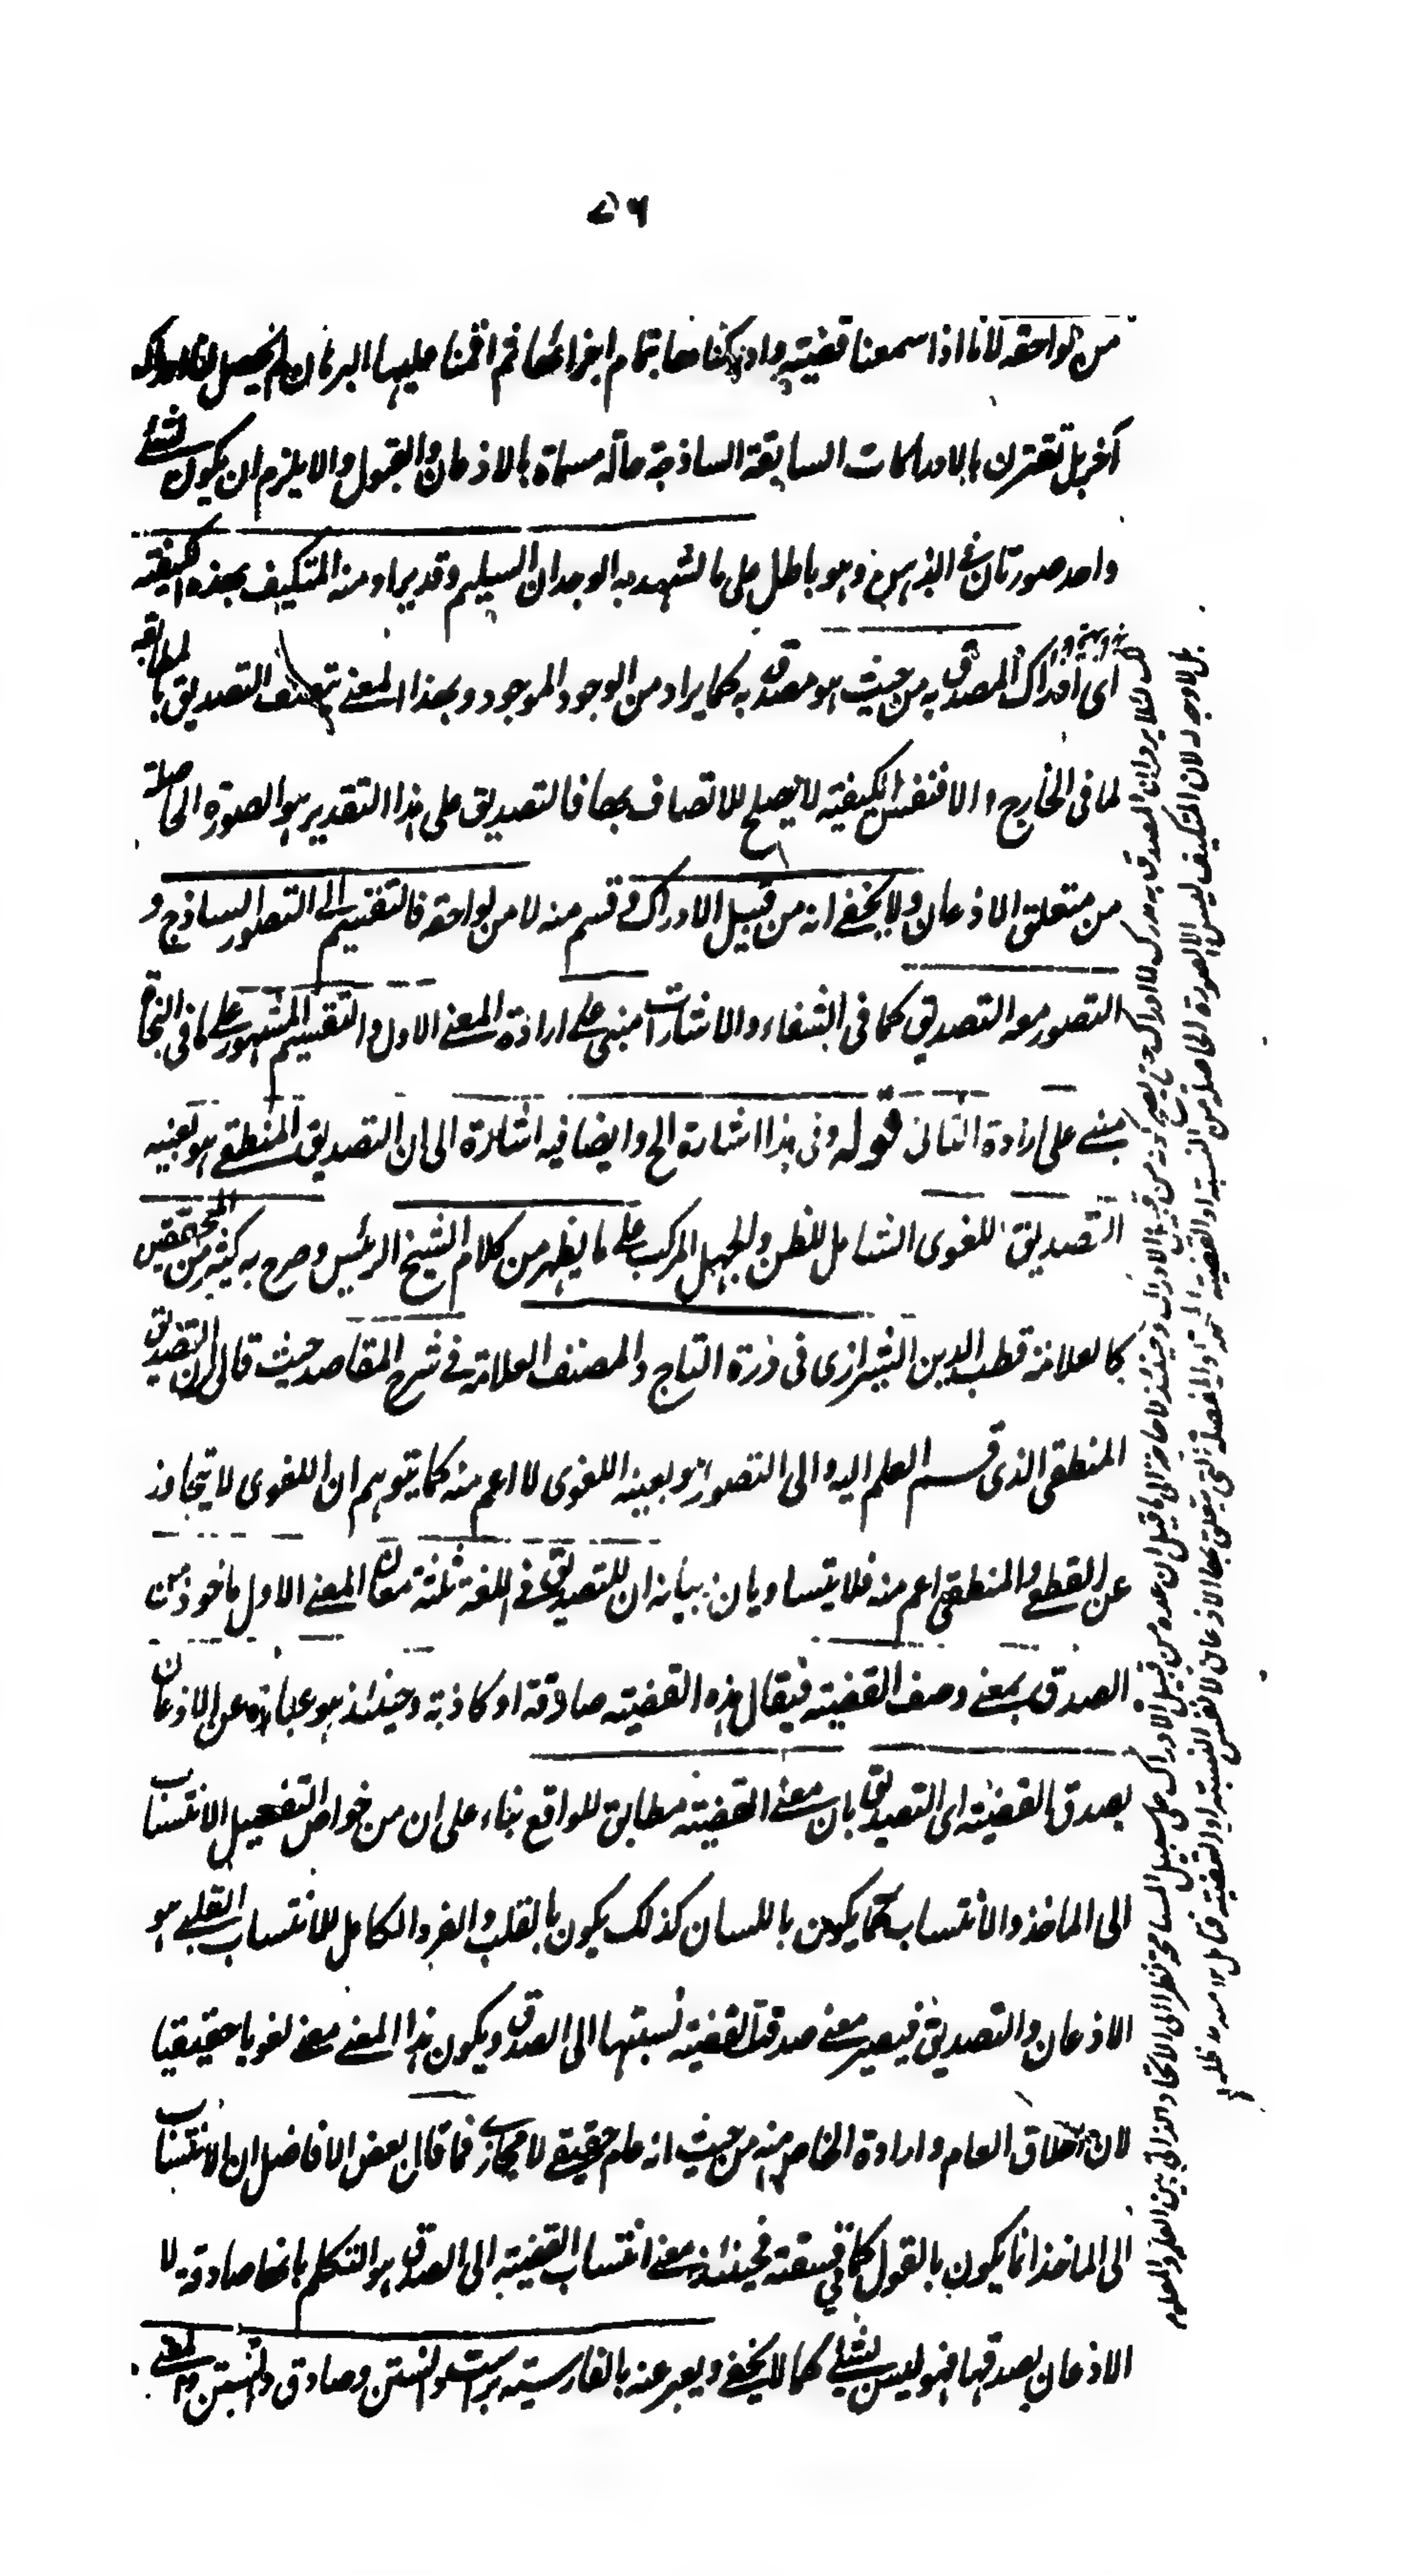 ٥٦
من لواحقه لانا اذا سمعنا قضيته وادركناها بتمام اجزائها ثم اقمنا عليها البرهان لم يحصل لنا ادراك
آخر بل تقترن بالادراكات السابقة الساذجة حالة مسماة بالاذعان والقبول والا يلزم ان يكون لشئ
واحد صورتان في الذهن وهو باطل على ما لشهد به الوجدان السليم وقد يراد منه المتكيف بهذه الكيفية
اى ادراك المصدق به من حيث هو مصدق به كما يراد من الوجود الموجود وبهذا المعنى تتصف التصديق بالمطابقة
لما فى الخارج والا فنفس الكيفية لا يصلح للاتصاف بها فالتصديق على هذا التقدير هو الصورة الحاصلة
من متعلق الاذعان ولا يخفى انه من قبيل الادراك وقسم منه لا من لواحقه فالتقسيم الى التصور الساذج و
التصور معه التصديق كما فى الشفاء والاشارات مبنى على ارادة المعنى الاول والتقسيم المشهور على ما فى النجاة
مبنى على ارادة الثانى قوله وفى هذا اشارة الخ وايضا فيه اشارة الى ان التصديق المنطقى هو بعينه
التصديق اللغوى الشامل للظن والجهل المركب على ما يظهر من كلام الشيخ الرئيس وصرح به كثير من المحققين
كالعلامة قطب الدين الشيرازى فى درة التاج والمصنف العلامة فى شرح المقاصد حيث قال ان التصديق
المنطقى الذى قسم العلم اليه والى التصور هو بعينه اللغوى لا اعم منه كما يتوهم ان اللغوى لا يتجاوز
عن القطع والمنطقى اعم منه فلا يتساويان بيانه ان للتصديق فى اللغة ثلثة معان المعنى الاول ماخوذ من
الصدق بمعنى وصف القضية فيقال هذه القضية صادقة او كاذبة وحينئذ هو عبارة عن الاذعان
بصدق القضية اى التصديق بان معنى القضية مطابق للواقع بناء على ان من خواص التفعيل الانتساب
الى الماخذ والانتساب كما يكون باللسان كذلك يكون بالقلب والفرد الكامل للانتساب القلبى هو
الاذعان والتصديق فيصير معنى صدقت القضية نسبتها الى الصدق ويكون هذا المعنى معنى لغويا حقيقيا
لان اطلاق العام وارادة الخاص منه من حيث انه عام حقيقى لا مجازى فما قال بعض الافاضل ان الانتساب
الى الماخذ انما يكون بالقول كما فى فسقته فحينئذ معنى انتساب القضية الى الصدق هو التكلم بانها صادقة لا
الاذعان بصدقها فهو ليس بشئ كما لا يخفى ويعبر عنه بالفارسية براست دانستن وصادق دانستن
لئلا يرد ان المصدق به مدرك لا ادراك من قبيل الادراك وحينئذ لا حاجة الى ما قيل ان عده من قبيل الادراك على سبيل المسامحة نظرا الى الاتحاد الذاتى بين العلم والمعلوم
بل لا وجه له لان المتكيف ليس الا الصورة الحاصلة من النسبة او القضية التى يتعلق بها الاذعان لا نفس النسبة او القضية فتامل